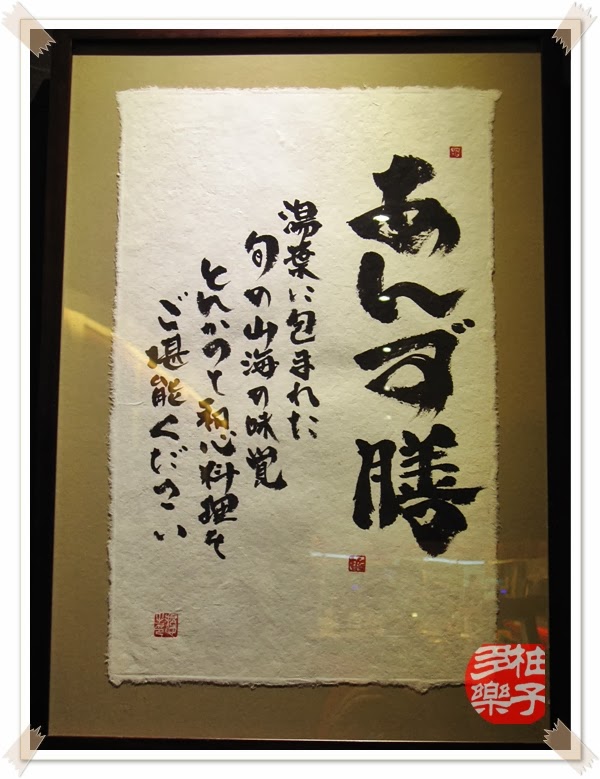 あんず膳
湯葉に包まれた
旬の山海の味覚
とんかつと和心料理を
ご堪能ください
柚子
多樂